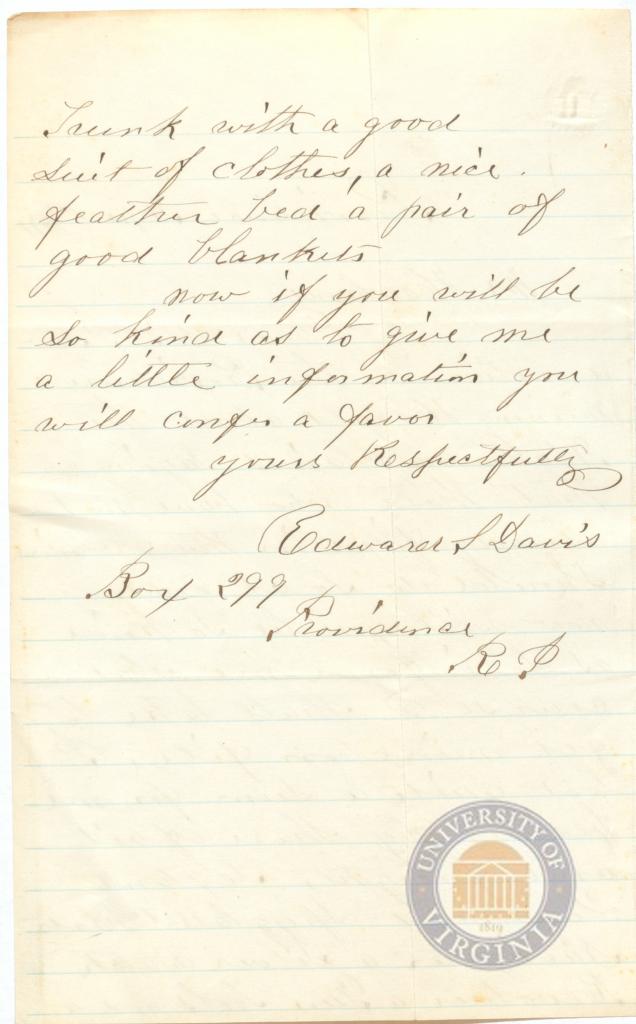 Trunk with a good
suit of clothes, a nice
feather bed a pair of
good blankets
now if you will be
so kind as to give me
a little information you
will confer a favor
yours Respectfully
Edward S Davis
Box 299
Providence
R I
UNIVERSITY OF
VIRGINIA
1819